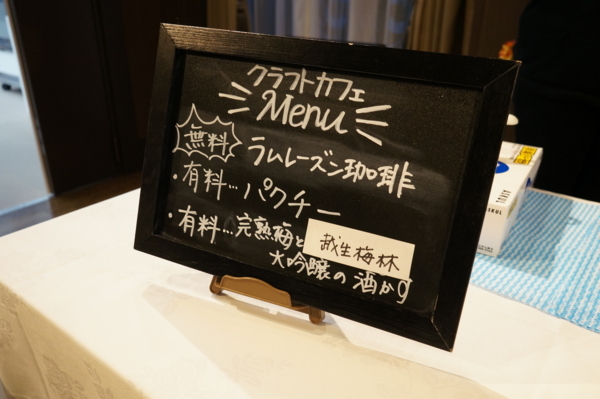 クラフトカフェ
Menu
無料 ラムレーズン珈琲
・有料…パクチー
・有料…完熟梅と 越生梅林
大吟醸の酒かす